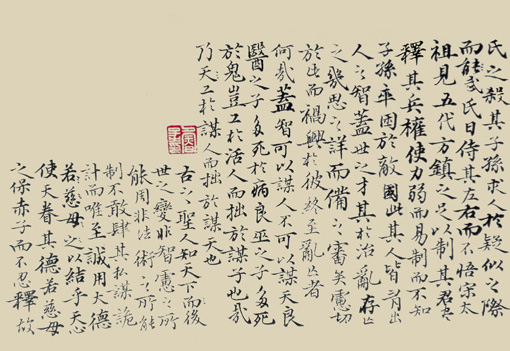 氏之殺其子孫求人於疑似之際
而武氏日侍其左右而不悟宋太
祖見五代方鎮之足以制其君盡
釋其兵權使力弱而易制而不知
子孫卒困於敵國此其人皆有出
人之智蓋世之才其於治亂存亡
之幾思之詳而備之審矣慮切
於此而禍興於彼終至亂亡者
何哉蓋智可以謀人不可以謀天良
醫之子多死於病良巫之子多死
於鬼豈工於活人而拙於謀子也哉
乃天工於謀人而拙於謀天也
古之聖人知天下而後
世之變非智慮之所
能周非法術之所能
制不敢肆其私謀詭
計而唯至誠用大德
若慈母之以結乎天心
使天眷其德若慈母
之保赤子而不忍釋故